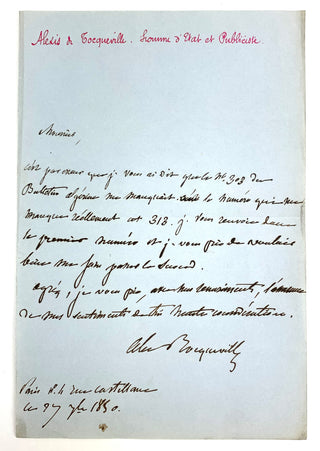 Alexis de Tocqueville. Homme d'Etat et Publiciste.
Monsieur,
c'est par erreur que je vous ai dit que le No 308 du
Bulletin me manquait. le numéro qui me
manque réellement est 318. je vous renvoie donc
le premier numéro et je vous prie de vouloir
bien me faire passer le second.
agréez, je vous prie, avec mes remerciments, l'assurance
de mes sentiments de très haute considération.
Alexis Tocqueville
Paris 8. 4 rue Castellane
ce 27 1850.